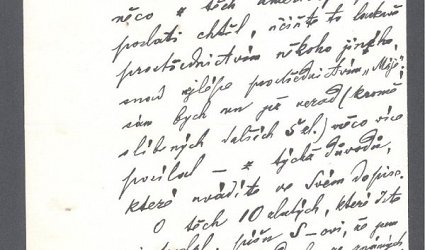 něco z těch
poslati chtěl, učiňte to laskavě
prostřednictvím někoho jiného,
snad nejlépe prostřednictvím „Máje";
sám bych mu již nerad (kromě
slíbených dalších 5 zl.) něco více
posílal – z týchž důvodů,
které uvádíte ve Svém dopise.
O těch 10 zlatých, které jste
píšu S–ovi, že jsem